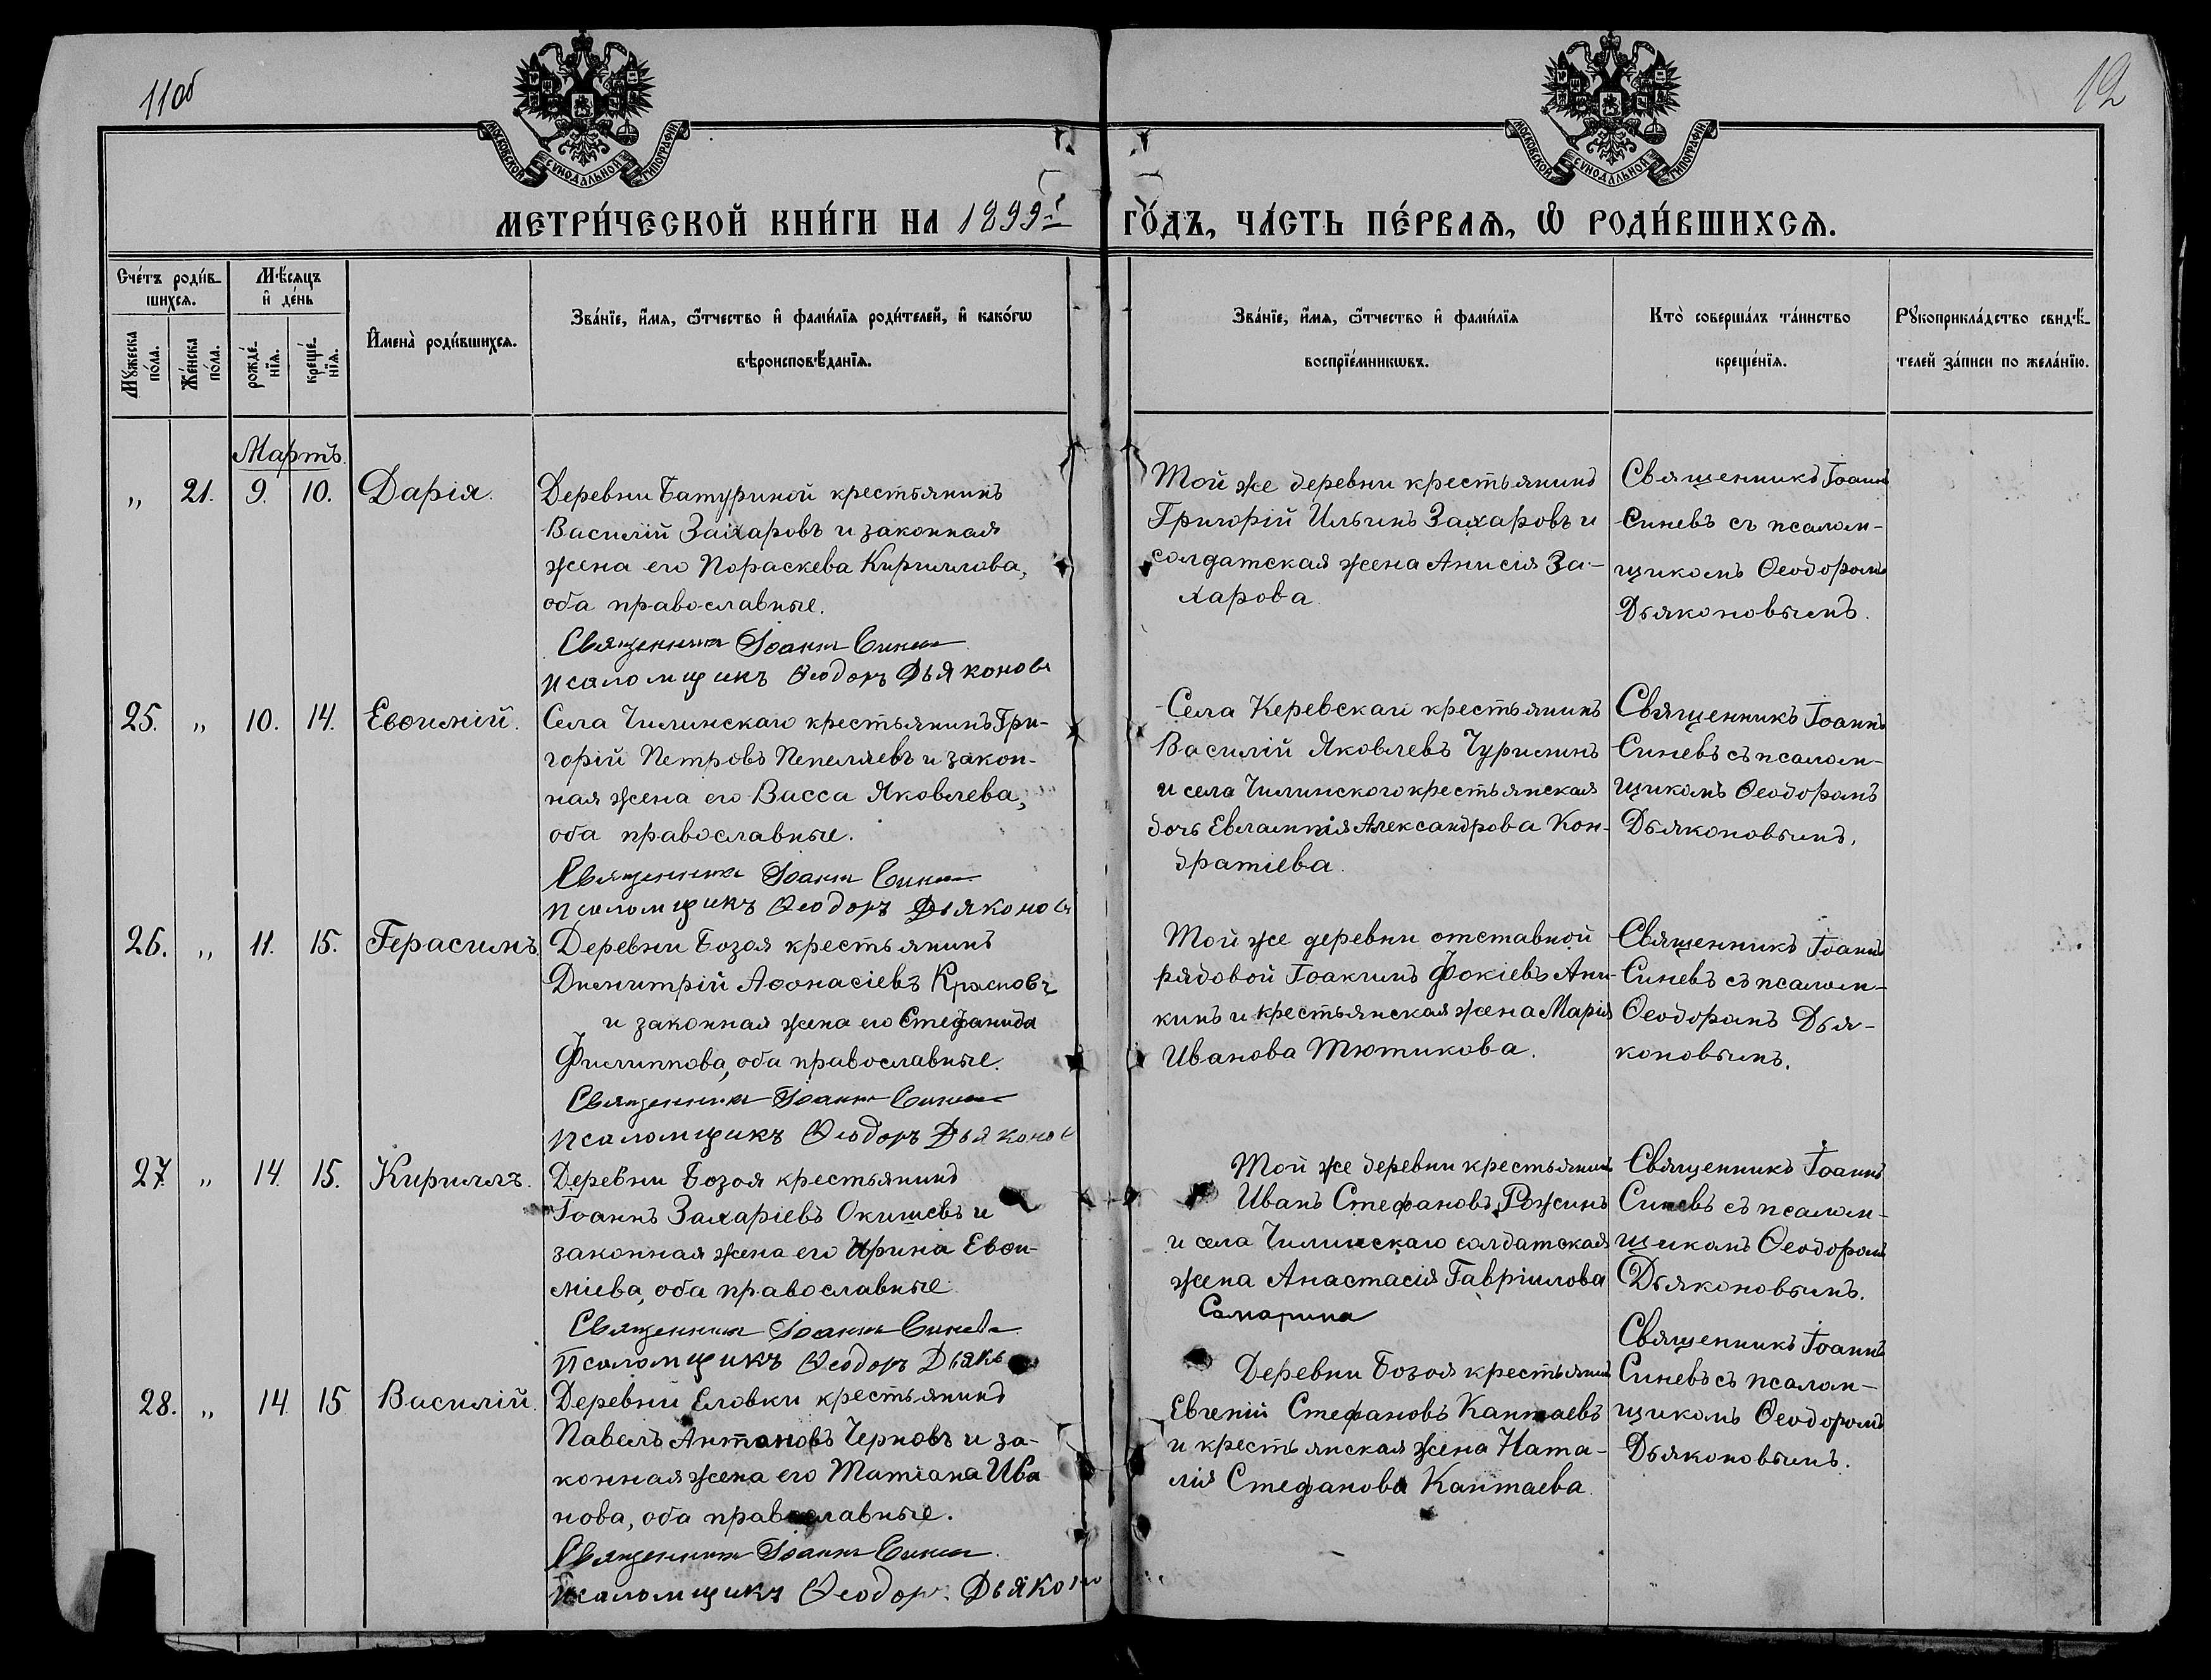 11об
12
МОСКОВСКОЙ СѴНОДАЛЬНОЙ ТИПОГРАФІИ
МОСКОВСКОЙ СѴНОДАЛЬНОЙ ТИПОГРАФІИ
МЕТРИ́ЧЕСКОЙ КНИ́ГИ НА 1899й ГО́ДЪ, ЧА́СТЬ ПЕ́РВАѦ, Ѡ҆ РОДИ́ВШИХСѦ.
Сче́тъ роди́в-
шихсѧ.
Мꙋ́жеска по́ла.
Же́нска по́ла.
Мѣ́сѧцъ
и҆ де́нь
рожде́-
нїѧ.
креще́-
нїѧ.
И҆мена̀ роди́вшихсѧ.
Зва́нїе, и҆́мѧ, ѻ҆́тчество и҆ фами́лїѧ роди́телей, и҆ како́гѡ
вѣроисповѣ́данїѧ.
Зва́нїе, и҆́мѧ, ѻ҆́тчество и҆ фами́лїѧ
воспрїе́мникѡвъ.
Кто̀ соверша́лъ та́инство
креще́нїѧ.
Рꙋкоприкла́дство свидѣ́-
телей за́писи по жела́нїю.
Мартъ.
„ 21. 9. 10. Дарія.
Деревни Батуриной крестьянинъ
Василій Захаровъ и законная
жена его Пораскева Кириллова,
оба православные.
Священникъ Іоаннъ Синевъ
Псаломщикъ Ѳеодоръ Дьяконовъ
Той же деревни крестьянинъ
Григорій Ильинъ Захаровъ и
солдатская жена Анисія За-
харова.
Священникъ Іоаннъ
Синевъ съ псалом-
щикомъ Ѳеодоромъ
Дьяконовымъ.
25. „ 10. 14. Евѳимій.
Села Чилинскаго крестьянинъ Гри-
горій Петровъ Пепеляевъ и закон-
ная жена его Васса Яковлева,
оба православные.
Священникъ Іоаннъ Синевъ
Псаломщикъ Ѳеодоръ Дьяконовъ
Села Керевскаго крестьянинъ
Василій Яковлевъ Чурилинъ
и села Чилинского крестьянская
дочь Евлампія Александрова Кон-
дратіева.
Священникъ Іоаннъ
Синевъ съ псалом-
щикомъ Ѳеодоромъ
Дьяконовымъ.
26. „ 11. 15. Герасимъ.
Деревни Бозоя крестьянинъ
Димитрій Аѳонасіевъ Красновъ
и законная жена его Стефанида
Филиппова, оба православные.
Священникъ Іоаннъ Синевъ
Псаломщикъ Ѳеодоръ Дьяконовъ
Той же деревни отставной
рядовой Іоакимъ Фокіевъ Ани-
кинъ и крестьянская жена Марія
Иванова Тютикова.
Священникъ Іоаннъ
Синевъ съ псалом-
Ѳеодоромъ Дья-
коновымъ.
27. „ 14. 15. Кириллъ.
Деревни Бозоя крестьянинъ
Іоаннъ Захаріевъ Окишевъ и
законная жена его Ирина Евѳи-
міева, оба православные.
Священникъ Іоаннъ Синевъ
Псаломщикъ Ѳеодоръ Дьяко
Той же деревни крестьянинъ
Иванъ Стефановъ Рожинъ
и села Чилинскаго солдатская
жена Анастасія Гавріилова
Самарина
Священникъ Іоаннъ
Синевъ съ псалом-
щикомъ Ѳеодоромъ
Дьяконовымъ.
28. „ 14. 15 Василій.
Деревни Еловки крестьянинъ
Павелъ Антоновъ Черновъ и за-
конная жена его Татіана Ива
нова, оба православные.
Священникъ Іоаннъ Синевъ
Псаломщикъ Ѳеодоръ Дьяконо
Деревни Бозоя крестьянинъ
Евгеній Стефановъ Каптаевъ
и крестьянская жена Ната-
лія Стефанова Каптаева.
Священникъ Іоаннъ
Синевъ съ псалом-
щикомъ Ѳеодоромъ
Дьяконовымъ.